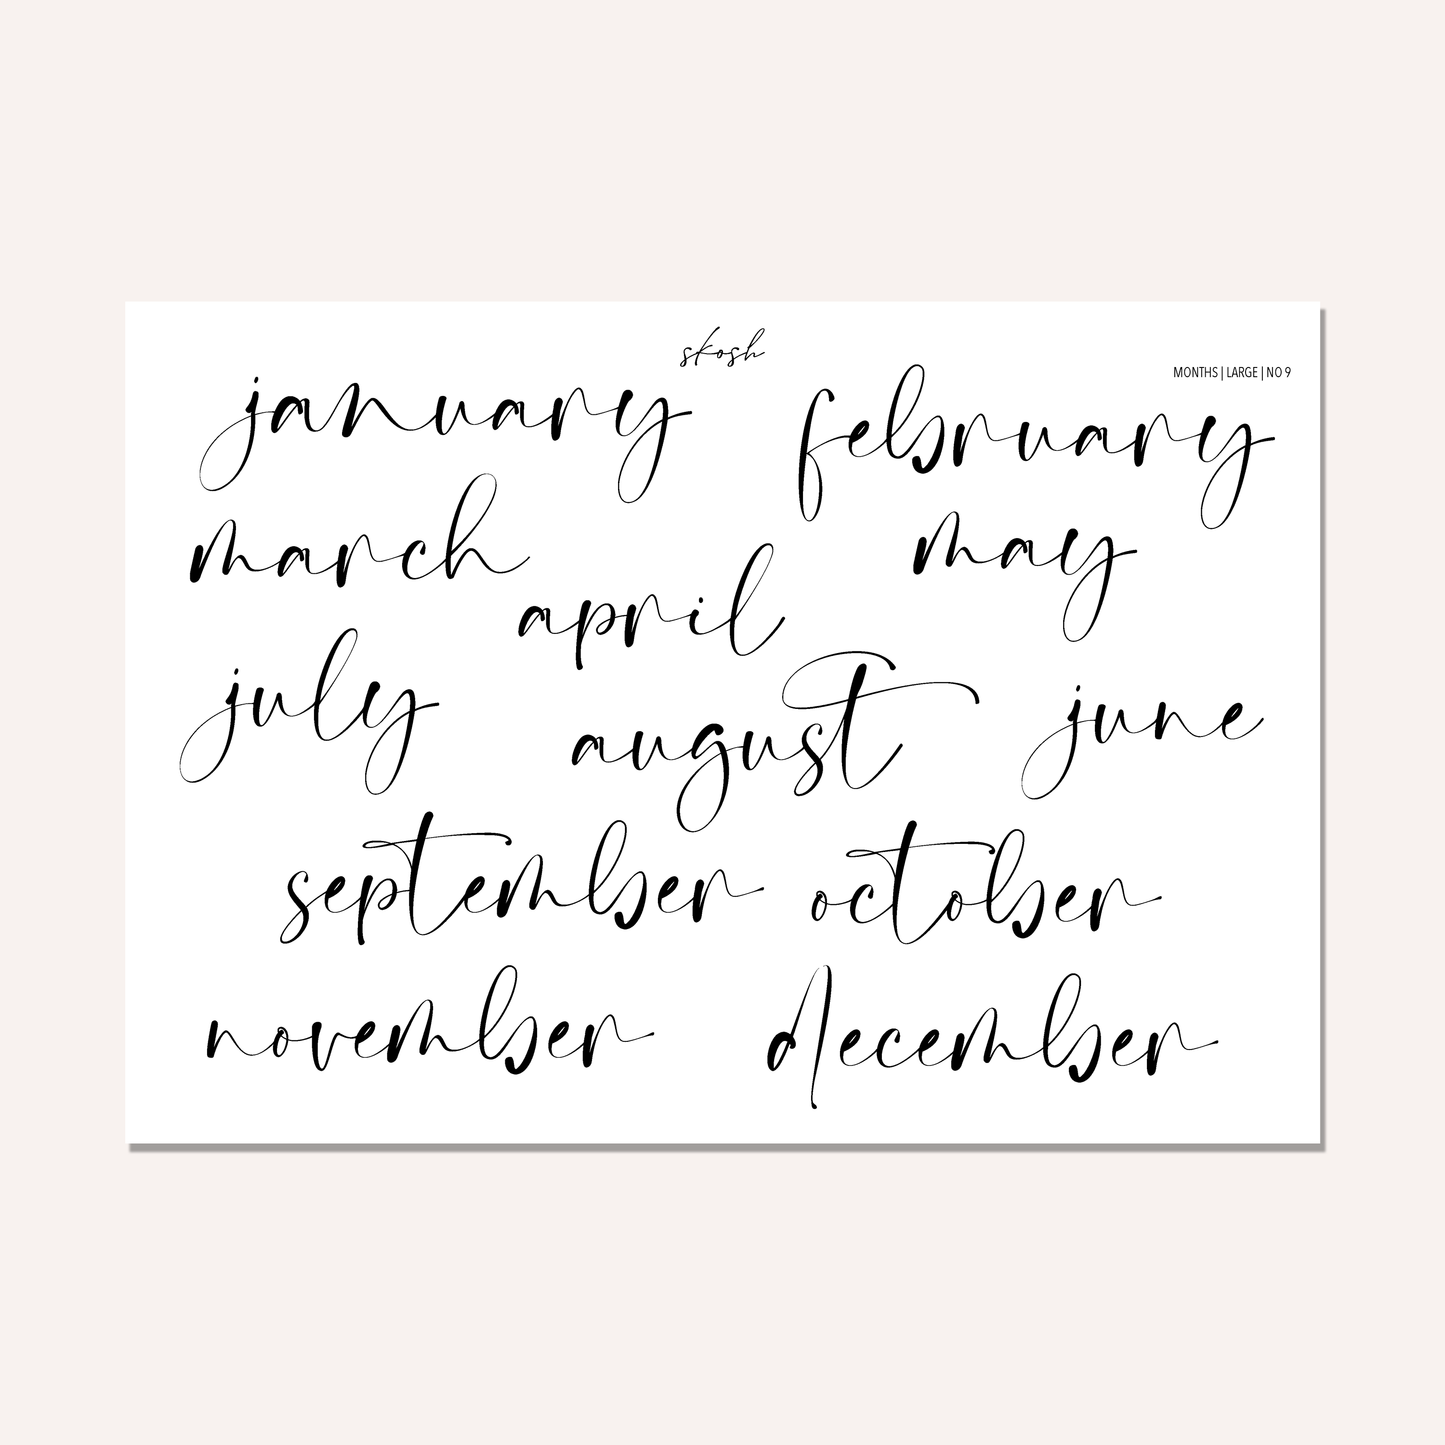 skosh
MONTHS | LARGE | NO 9
january february
march may
april
july august june
september october
november december